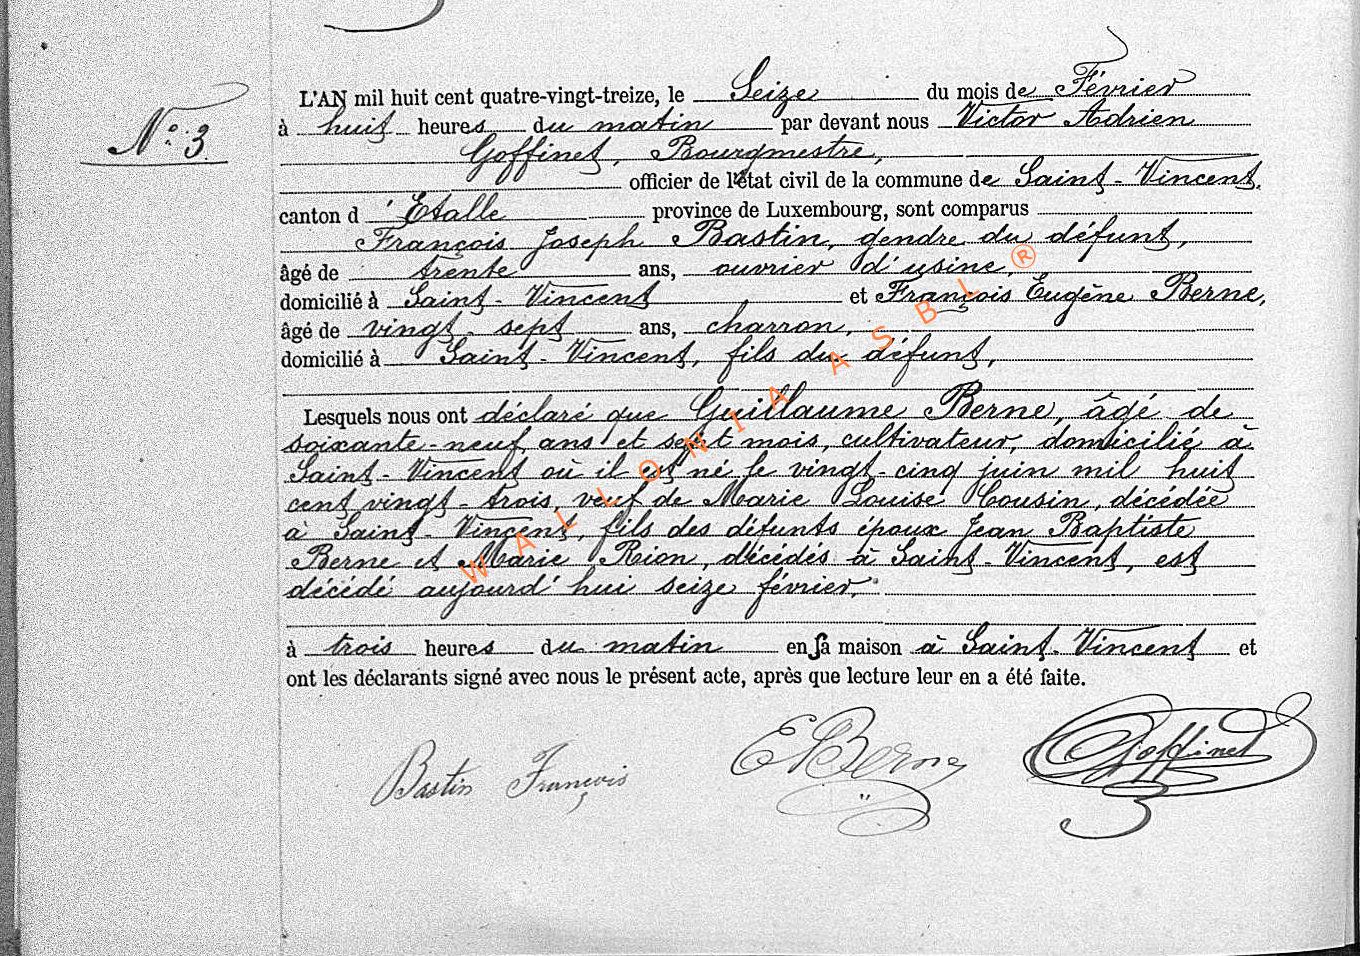 L'AN mil huit cent quatre-vingt-treize, le Seize du mois de Février
N.° 3.
à huit heures du matin par devant nous Victor Adrien
Goffinet, Bourgmestre,
officier de l'état civil de la commune de Saint-Vincent,
canton d'Etalle province de Luxembourg, sont comparus
François Joseph Bastin, gendre du défunt,
âgé de trente ans, ouvrier d'usine,
domicilié à Saint-Vincent et François Eugène Berne,
âgé de vingt-sept ans, charron,
domicilié à Saint-Vincent, fils du défunt,
Lesquels nous ont déclaré que Guillaume Berne, âgé de
soixante-neuf ans et sept mois, cultivateur, domicilié à
Saint-Vincent où il est né le vingt-cinq juin mil huit
cent vingt-trois, veuf de Marie Louise Cousin, décédée
à Saint-Vincent, fils des défunts époux Jean Baptiste
Berne et Marie Rion, décédés à Saint-Vincent, est
décédé aujourd'hui seize février,
à trois heures du matin en sa maison à Saint-Vincent et
ont les déclarants signé avec nous le présent acte, après que lecture leur en a été faite.
Bastin François
E Berne
Goffinet
WALLONIA ASBL ®